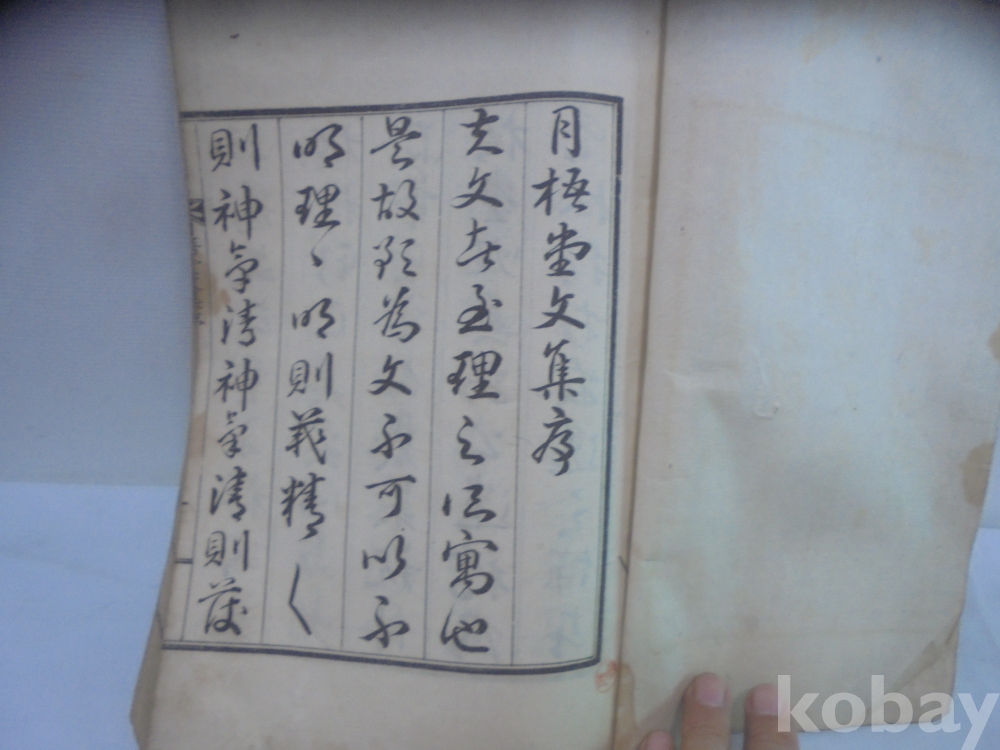 月梧堂文集序
夫文者至理之所寓也
是故欲為文不可以不
明理、明則義精〱
則神氣清神氣清則發
kobay